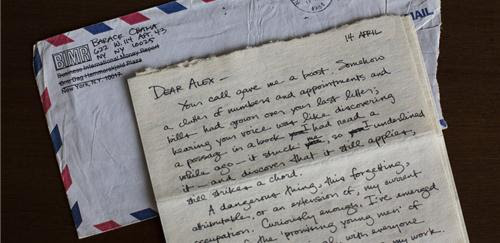 BIMR
Business International Money Report
One Dag Hammarskjold Plaza
New York, N.Y. 10017
BARACK OBAMA
622 W. 114 APT. 43
NY NY
10025
1984
MAIL
14 APRIL
DEAR ALEX –
Your call gave me a boost. Somehow
a clutter of numbers and appointments and
bills had grown over your last letters;
hearing your voice was like discovering
a passage in a book I had read a
while ago – it struck me, so I underlined
it – and discover that it still applies,
still strikes a chord.
A dangerous thing, this forgetting,
attributable, or an extension of, my current
occupation. Curiously enough, I've emerged
of the "promising young men" of
with everyone
my work.